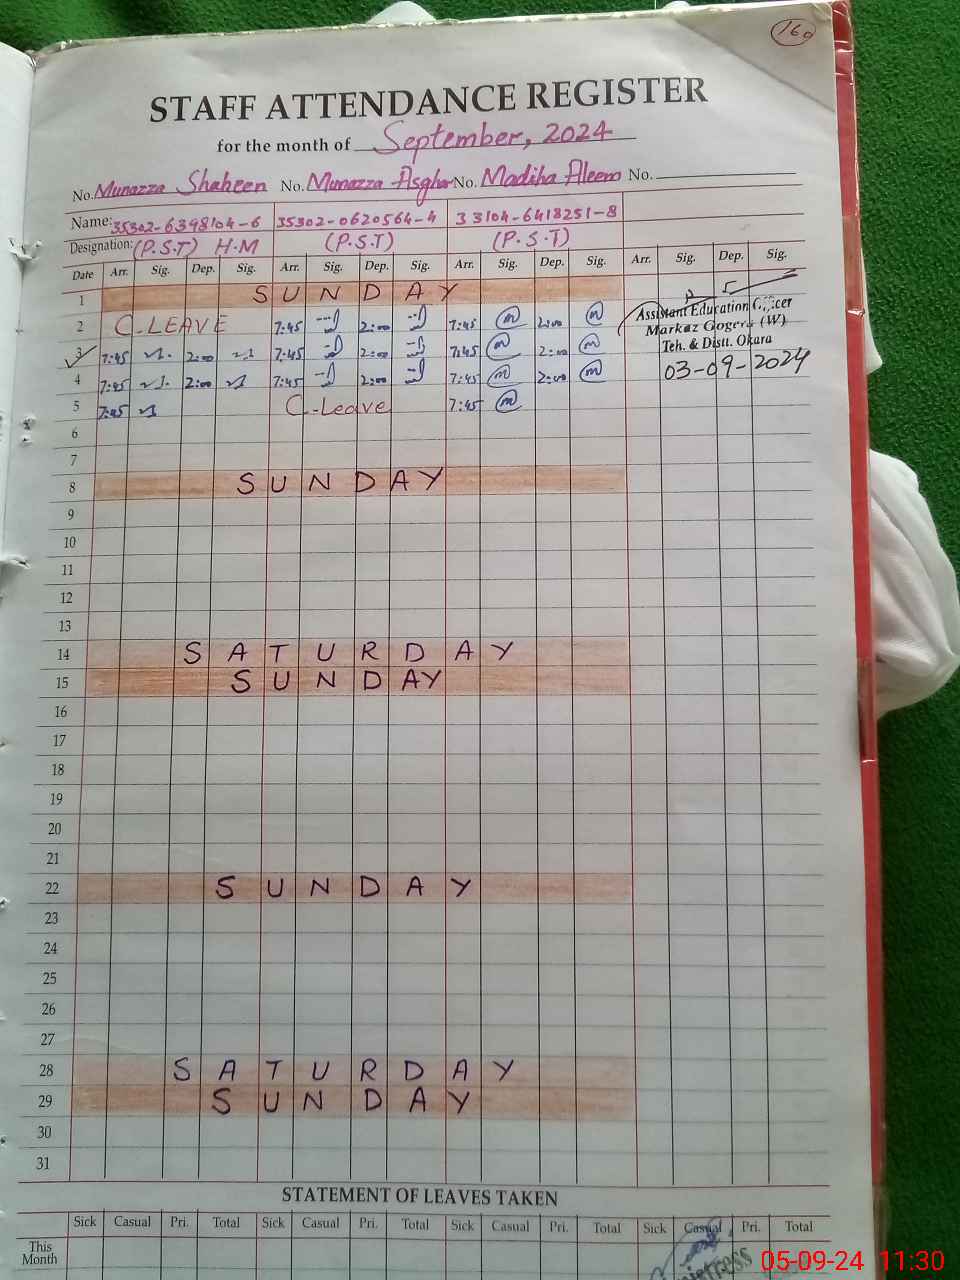 160
STAFF ATTENDANCE REGISTER
for the month of September, 2024
No. Munazza Shaheen No. Munazza Asghar No. Madiha Aleem No.
Name: 35302-6398104-6 35302-0620564-4 33104-6418251-8
Designation: (P.S.T) H.M (P.S.T) (P.S.T)
Date Arr. Sig. Dep. Sig. Arr. Sig. Dep. Sig. Arr. Sig. Dep. Sig. Arr. Sig. Dep. Sig.
1 SUNDAY
2 C-LEAVE 7:45 2:00 7:45 m 2:00 m
3 7:45 2:00 7:45 2:00 7:45 m 2:00 m
4 7:45 2:00 7:45 2:00 7:45 m 2:00 m
5 7:45 C-Leave 7:45 m
Assistant Education Officer
Markaz Gogera (W)
Teh. & Distt. Okara
03-09-2024
6
7
8 SUNDAY
9
10
11
12
13
14 SATURDAY
15 SUNDAY
16
17
18
19
20
21
22 SUNDAY
23
24
25
26
27
28 SATURDAY
29 SUNDAY
30
31
STATEMENT OF LEAVES TAKEN
Sick Casual Pri. Total Sick Casual Pri. Total Sick Casual Pri. Total Sick Casual Pri. Total
This
Month
05-09-24 11:30